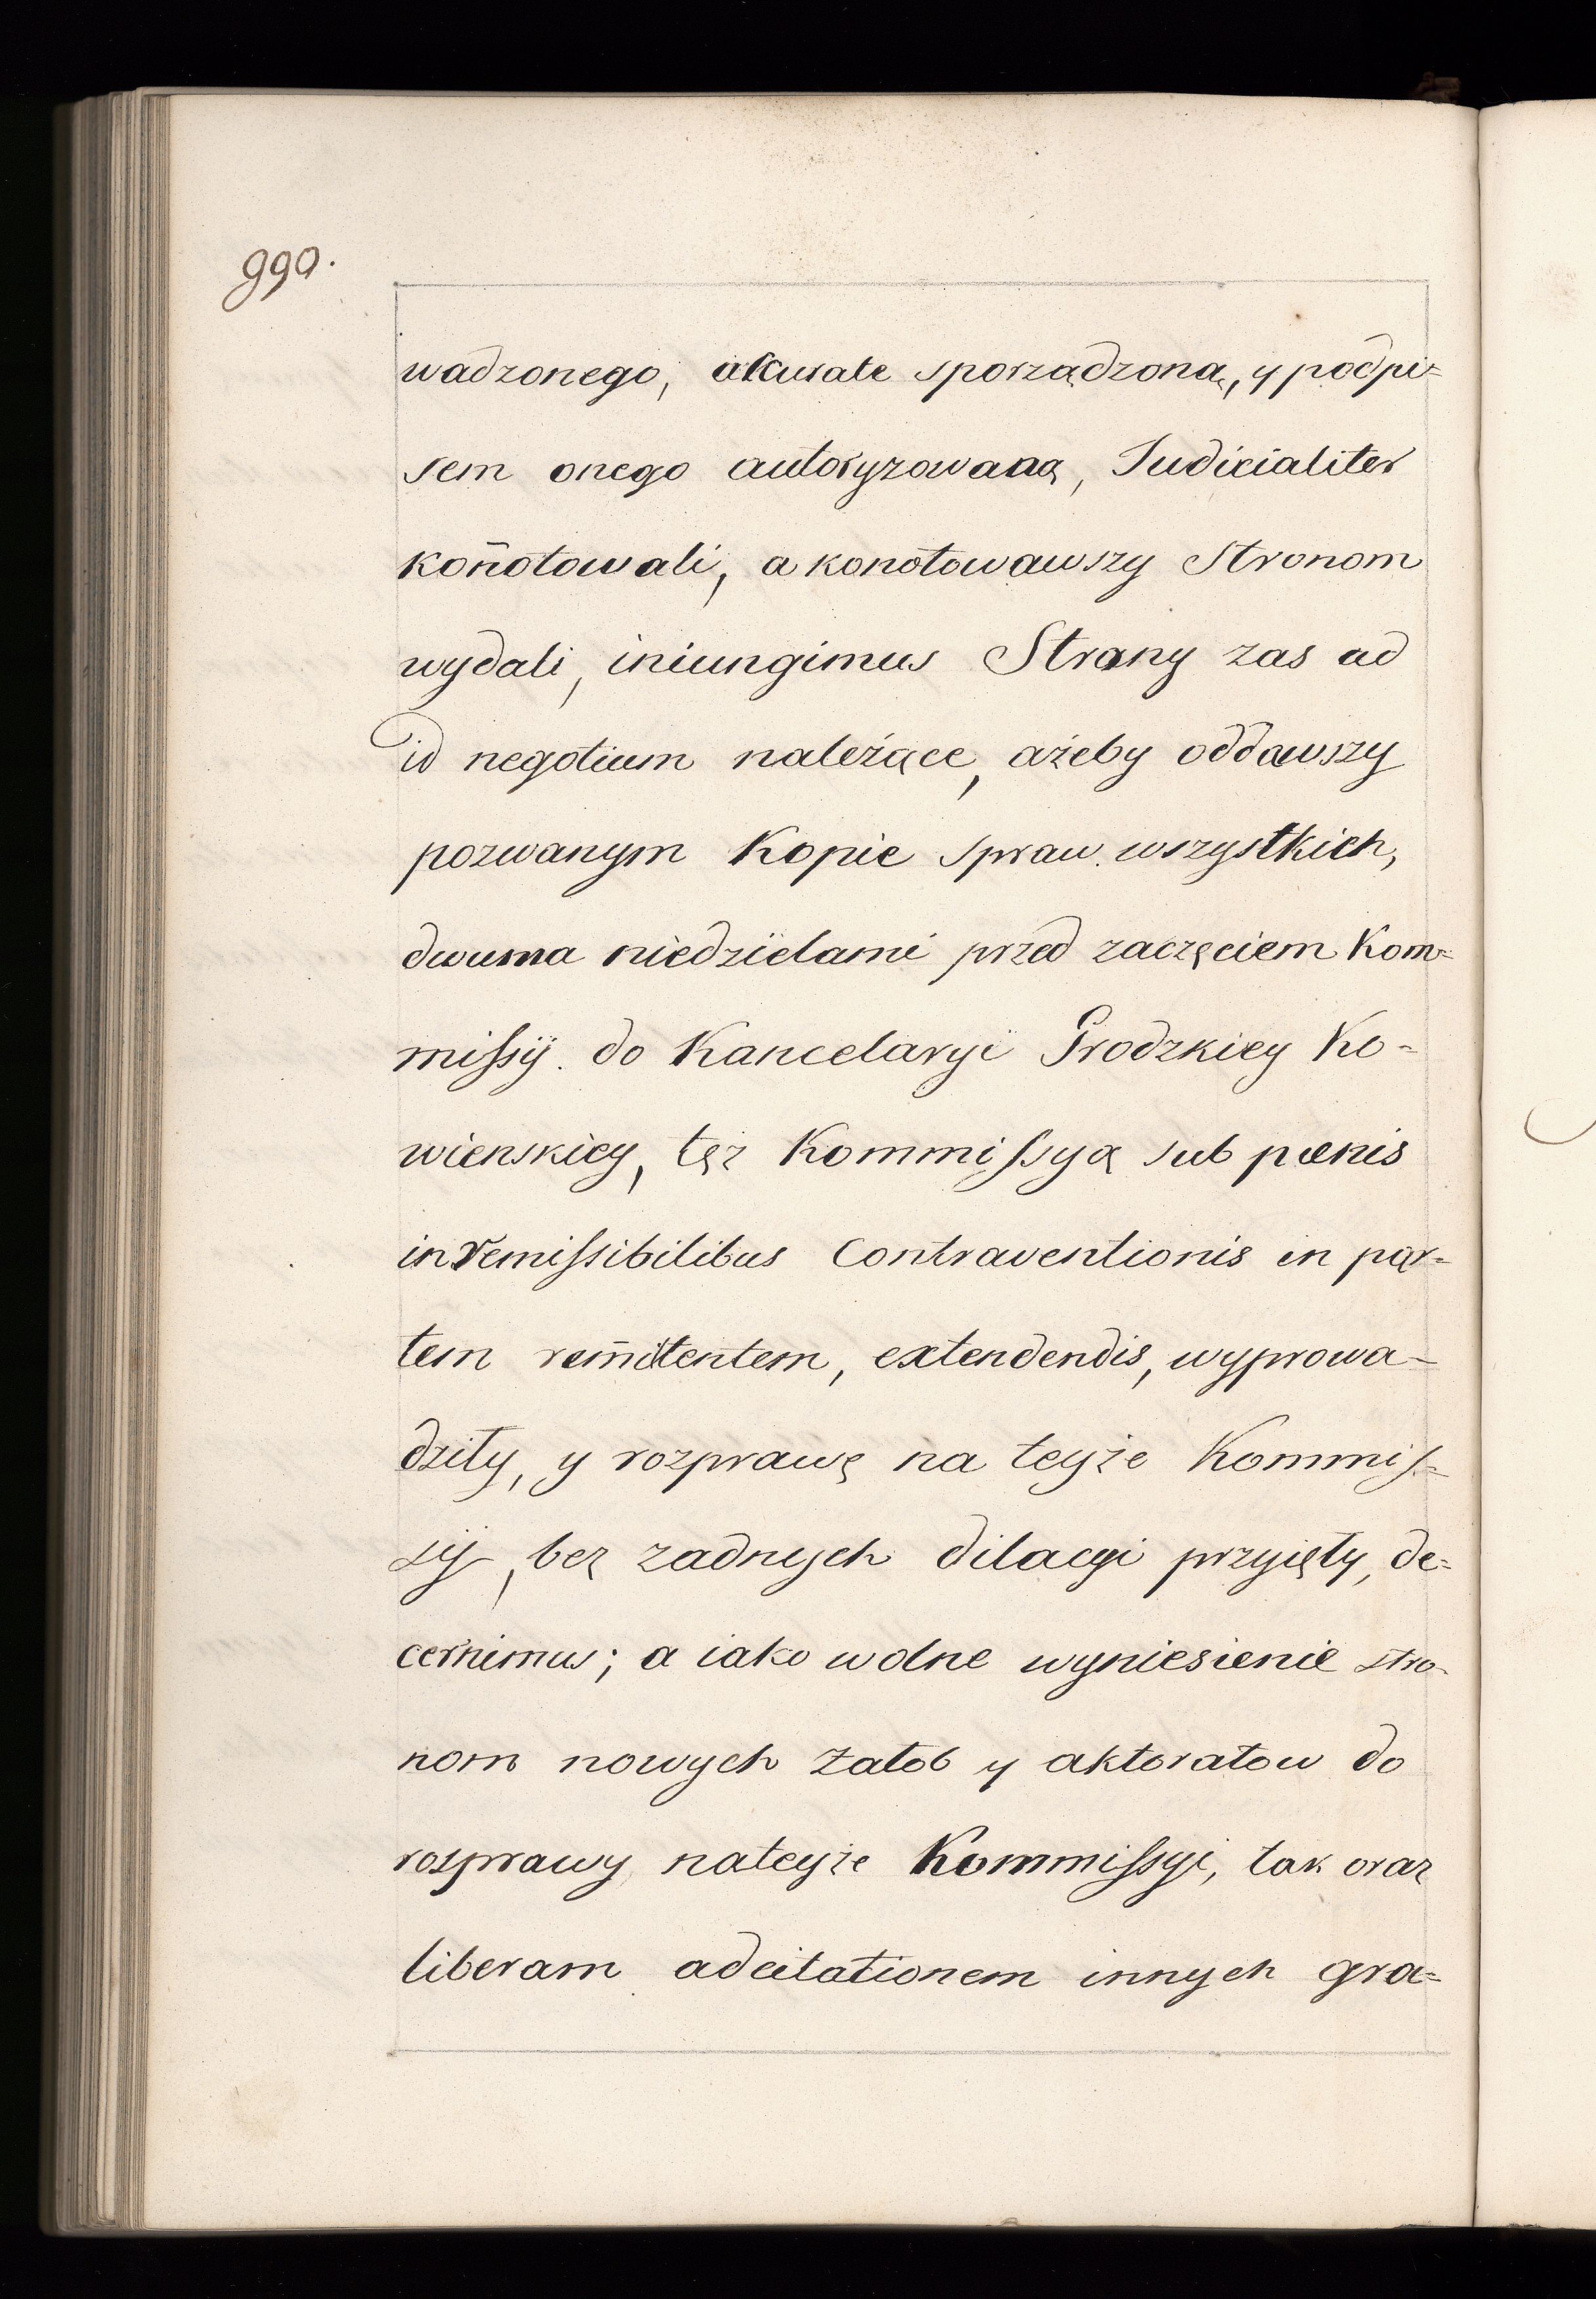 990.
wadzonego, akurate sporządzoną, y podpi=
sem onego autoryzowaną, Judicialiter
kon̄otowali, a konotowawszy Stronom
wydali, iniungimus Strony zas ad
id negotium należące, ażeby oddawszy
pozwanym Kopie spraw. wszystkich,
dwuma niedzielami przed zaczęciem Kom=
miſsÿ. do Kancelaryi Grodzkiey Ko=
wienskiey, tęż Kommiſsyą sub pœnis
inremiſsibilibus Contraventionis in par=
tem rem̄itentem, extendendis, wyprowa=
dziły, y rozprawę na teyże Kommiſ=
sÿ, bez zadnych dilacyi przyięły, de=
cernimus; a iako wolne wyniesienie stro=
nom nowych Załob y aktoratow do
rosprawy nateyże Kommiſsyi, tak oraz
liberam adcitationem innych gra=